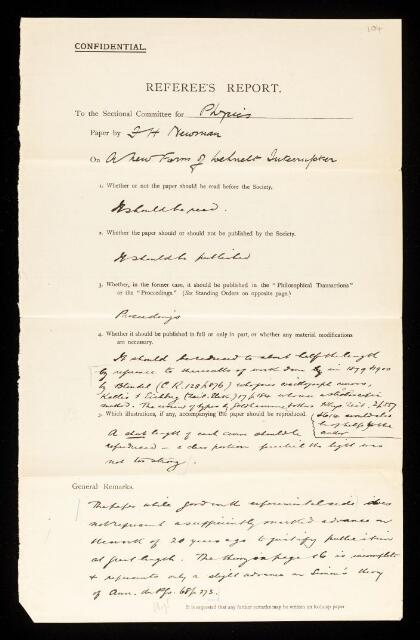 104
CONFIDENTIAL.
REFEREE'S REPORT.
To the Sectional Committee for Physics
Paper by F H Newman
On A New Form of Wehnelt Interrupter
1. Whether or not the paper should be read before the Society.
It should be read.
2. Whether the paper should or should not be published by the Society.
It should be published
3. Whether, in the former case, it should be published in the "Philosophical Transactions"
or the "Proceedings." (See Standing Orders on opposite page.)
Proceedings
4. Whether it should be published in full or only in part, or whether any material modifications
are necessary.
It should be reduced to about half the length
by reference to the results of work done in 1899 & 1900
by Blondel (C.R. 128 p 876) who gives oscillograph curves,
method. The review of types by
5. Which illustrations, if any, accompanying the paper should be reproduced.
also
be of help to the
author
A short length of each curve should be
reproduced - a clear portion the light was
not too strong.
General Remarks.
The paper while good on the experimental side does
not represent a sufficiently marked advance on
the work of 20 years ago to justify publication
at great length. The theory on page 16 is incomplete
& represents only a slight advance on Simon's theory
of Ann. der Phys. 68 p 273.
It is requested that any further remarks may be written on foolscap paper